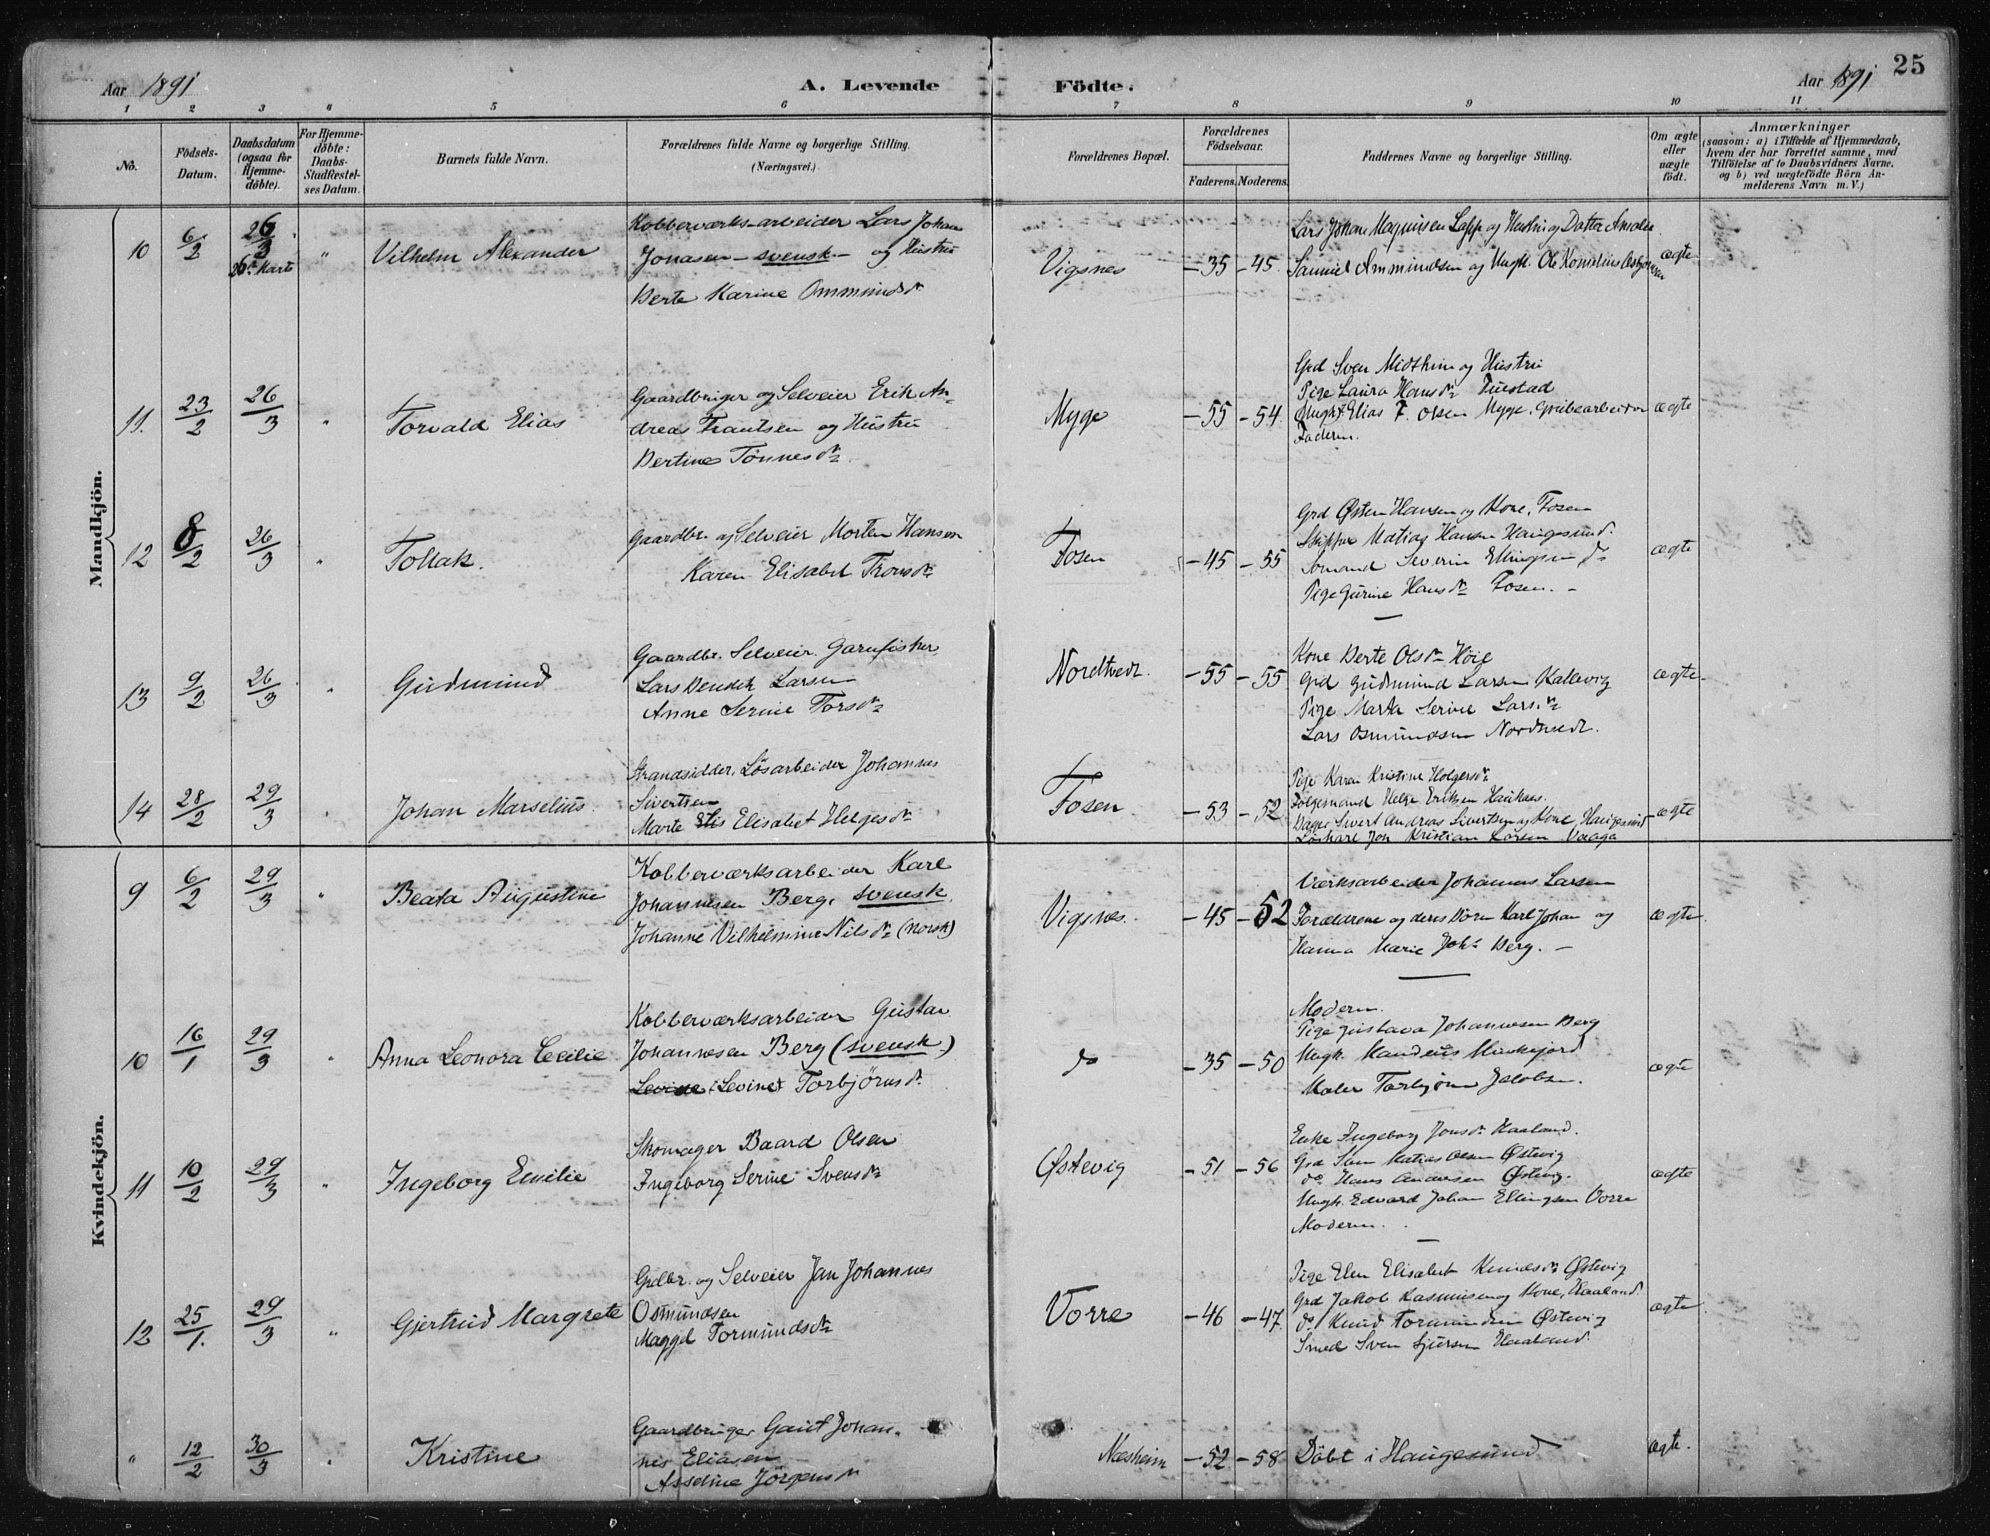 Aar 1891
A. Levende
Födte.
Aar 1891
25
1 2 3 " 5 6 7 8 9 10 11
No.
Födsels-Datum.
Daabsdatum (ogsaa for Hjemme-döbte).
For Hjemme-döbte: Daabs-Stadfestel-ses Datum.
Barnets fulde Navn.
Forældrenes fulde Navne og borgerlige Stilling.
(Næringsvei.)
Forældrenes Bopæl.
Forældrenes Födselsaar.
Faderens. Moderens.
Faddernes Navne og borgerlige Stilling.
Om ægte eller uægte födt.
Anmærkninger
(saasom: a) i Tilfælde af Hjemmedaab,
hvem der har forrettet samme, med
Tilföielse af to Daabsvidners Navne,
og b) ved uægtefödte Börn An-
melderens Navn m. V.)
Mandkjön.
10 6/2 26/3 26de Marts " Vilhelm Alexander
Kobberværks-arbeider Lars Johan
Jonasen – svensk – og Hustru
Berte Karine Ommundsdr
Vigsnes -35 -45
Lars Johan Magnusen Lapp og Hustru og Datter Amalia
Samuel Ammundsen og Ungk. Ole Kornelius
ægte
11. 23/2 26/3 " Torvald Elias
Gaardbruger og Selveier Erik An-
dreas Frantsen og Hustru
Bertine Tönnesdr
Myge -55 -54
Grd Sven Midthun og Hustru
Pige Laura Hansdr
Ungk. Elias F. Olsen Myge, Grubearbeider
Faderen.
ægte
12 8/2 26/3 " Tollak.
Gaardbr. og Selveier Morten Hansen
Karen Elisabet Tronsdr
Fosen -45 -55
Grd Østen Hansen og Kone, Fosen
Skipper Matias Hansen Haugesund.
Sömand Severin Ellingsen do
Pige Gurine Hansdr Fosen. –
ægte
13 9/2 26/3 " Gudmund
Gaardbr. Selveier. Garnfisker
Lars Bendik Larsen
Anne Serine Torsdr
Nordtvedt. -55 -55
Kone Berte Olsdr Höie
Grd Gudmund Larsen Kallevig
Pige Marta Serine Larsdr
Lars Osmundsen Nordtvedt.
ægte
14 28/2 29/3 " Johan Marselius.
Strandsidder, Lösarbeider Johannes
Sivertsen
Marte Elisabet Helgesdr
Fosen -53 -52
Pige Karen Kristine Holgersdr
Fölgemand Helge Eriksen Haukaas.
Sivert Andreas Sivertsen og Kone, Haugesund
Löskarl Joh Kristian Larsen Vaaga
ægte
Kvindekjön.
9 6/2 29/3 " Beata Augustine
Kobberværksarbeider Karl
Johannesen Berg, svensk.
Johanne Vilhelmine Nilsdr (norsk)
Vigsnes. -45 -52
Værksarbeider Johannes Larsen
Forældrene og deres Börn Karl Johan og
Hanna Marie Johs Berg. –
ægte
10 16/1 29/3 " Anna Leonora Cecilie
Kobberværksarbeider Gustav
Johannesen Berg (svensk.)
Levine Torbjörnsdr
do -35 -50
Moderen.
Pige Gustava Johannesen Berg
Ungk.
Maler Torbjörn Jakobsen.
ægte
11 10/2 29/3 " Ingeborg Emilie
Skomager Baard Olsen
Ingeborg Serine Svensdr
Østevig -51 -56
Enke Ingeborg Jonsdr Haaland.
Grd Matias Olsen Østevig
do Hans Andersen Østevig.
Ungk. Edvard Johan Ellingsen Vorre
Moderen.
ægte
12 25/1. 29/3 " Gjertrud Margrete
Grdbr. og Selveier Jan Johannes
Osmundsen
Maggel Tormundsdr
Vorre -46 -47
Pige Elen Elisabet Knudsdr Østevig
Grd Jakob Rasmusen og Kone, Haaland.
do Knud Østevig
Smed Sven Sjursen Haaland.
ægte
" 12/2 30/3 " Kristine
Gaardbruger Gaut Johan-
nes Eliasen
Asseline Jörgensdr
Næsheim -52 -58
Döbt i Haugesund
ægte.